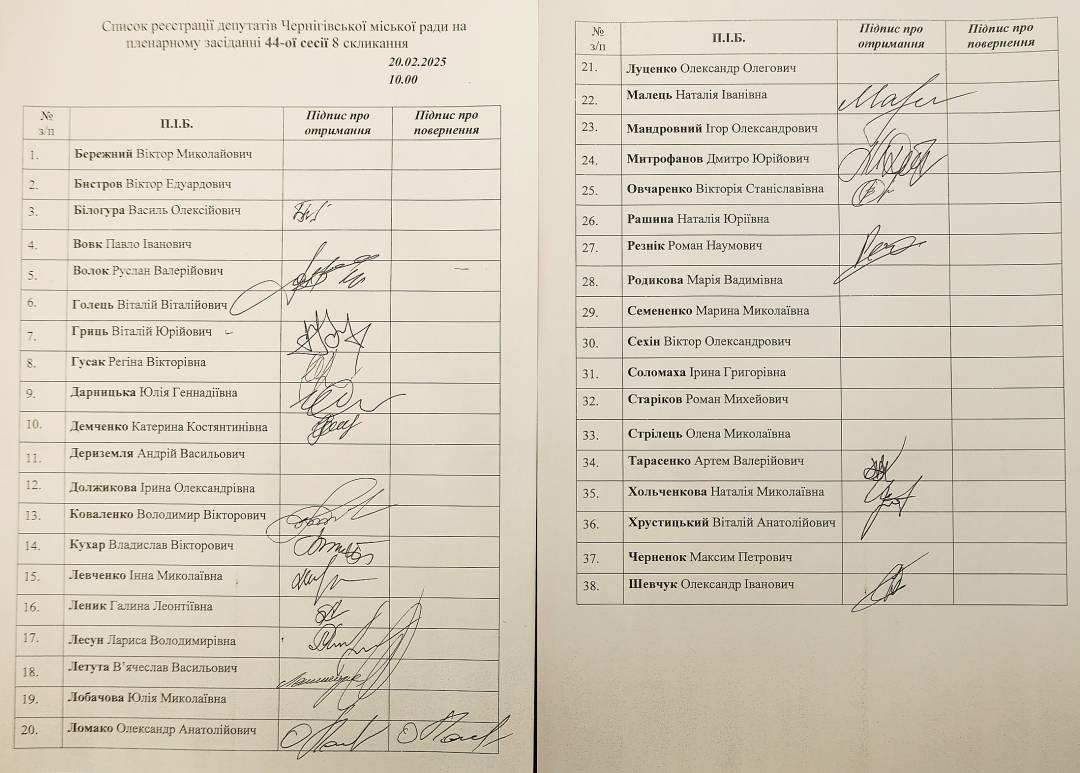 Список реєстрації депутатів Чернігівської міської ради на
пленарному засіданні 44-ої сесії 8 скликання
20.02.2025
10.00
№ з/п П.І.Б. Підпис про отримання Підпис про повернення
1. Бережний Віктор Миколайович
2. Бистров Віктор Едуардович
3. Білогура Василь Олексійович
4. Вовк Павло Іванович
5. Волок Руслан Валерійович
6. Голець Віталій Віталійович
7. Гриць Віталій Юрійович
8. Гусак Регіна Вікторівна
9. Дарницька Юлія Геннадіївна
10. Демченко Катерина Костянтинівна
11. Дериземля Андрій Васильович
12. Должикова Ірина Олександрівна
13. Коваленко Володимир Вікторович
14. Кухар Владислав Вікторович
15. Левченко Інна Миколаївна
16. Леник Галина Леонтіївна
17. Лесун Лариса Володимирівна
18. Летута В’ячеслав Васильович
19. Лобачова Юлія Миколаївна
20. Ломако Олександр Анатолійович
№ з/п П.І.Б. Підпис про отримання Підпис про повернення
21. Луценко Олександр Олегович
22. Малець Наталія Іванівна
23. Мандровний Ігор Олександрович
24. Митрофанов Дмитро Юрійович
25. Овчаренко Вікторія Станіславівна
26. Рашина Наталія Юріївна
27. Резнік Роман Наумович
28. Родикова Марія Вадимівна
29. Семененко Марина Миколаївна
30. Сехін Віктор Олександрович
31. Соломаха Ірина Григорівна
32. Старіков Роман Михейович
33. Стрілець Олена Миколаївна
34. Тарасенко Артем Валерійович
35. Хольченкова Наталія Миколаївна
36. Хрустицький Віталій Анатолійович
37. Черненок Максим Петрович
38. Шевчук Олександр Іванович